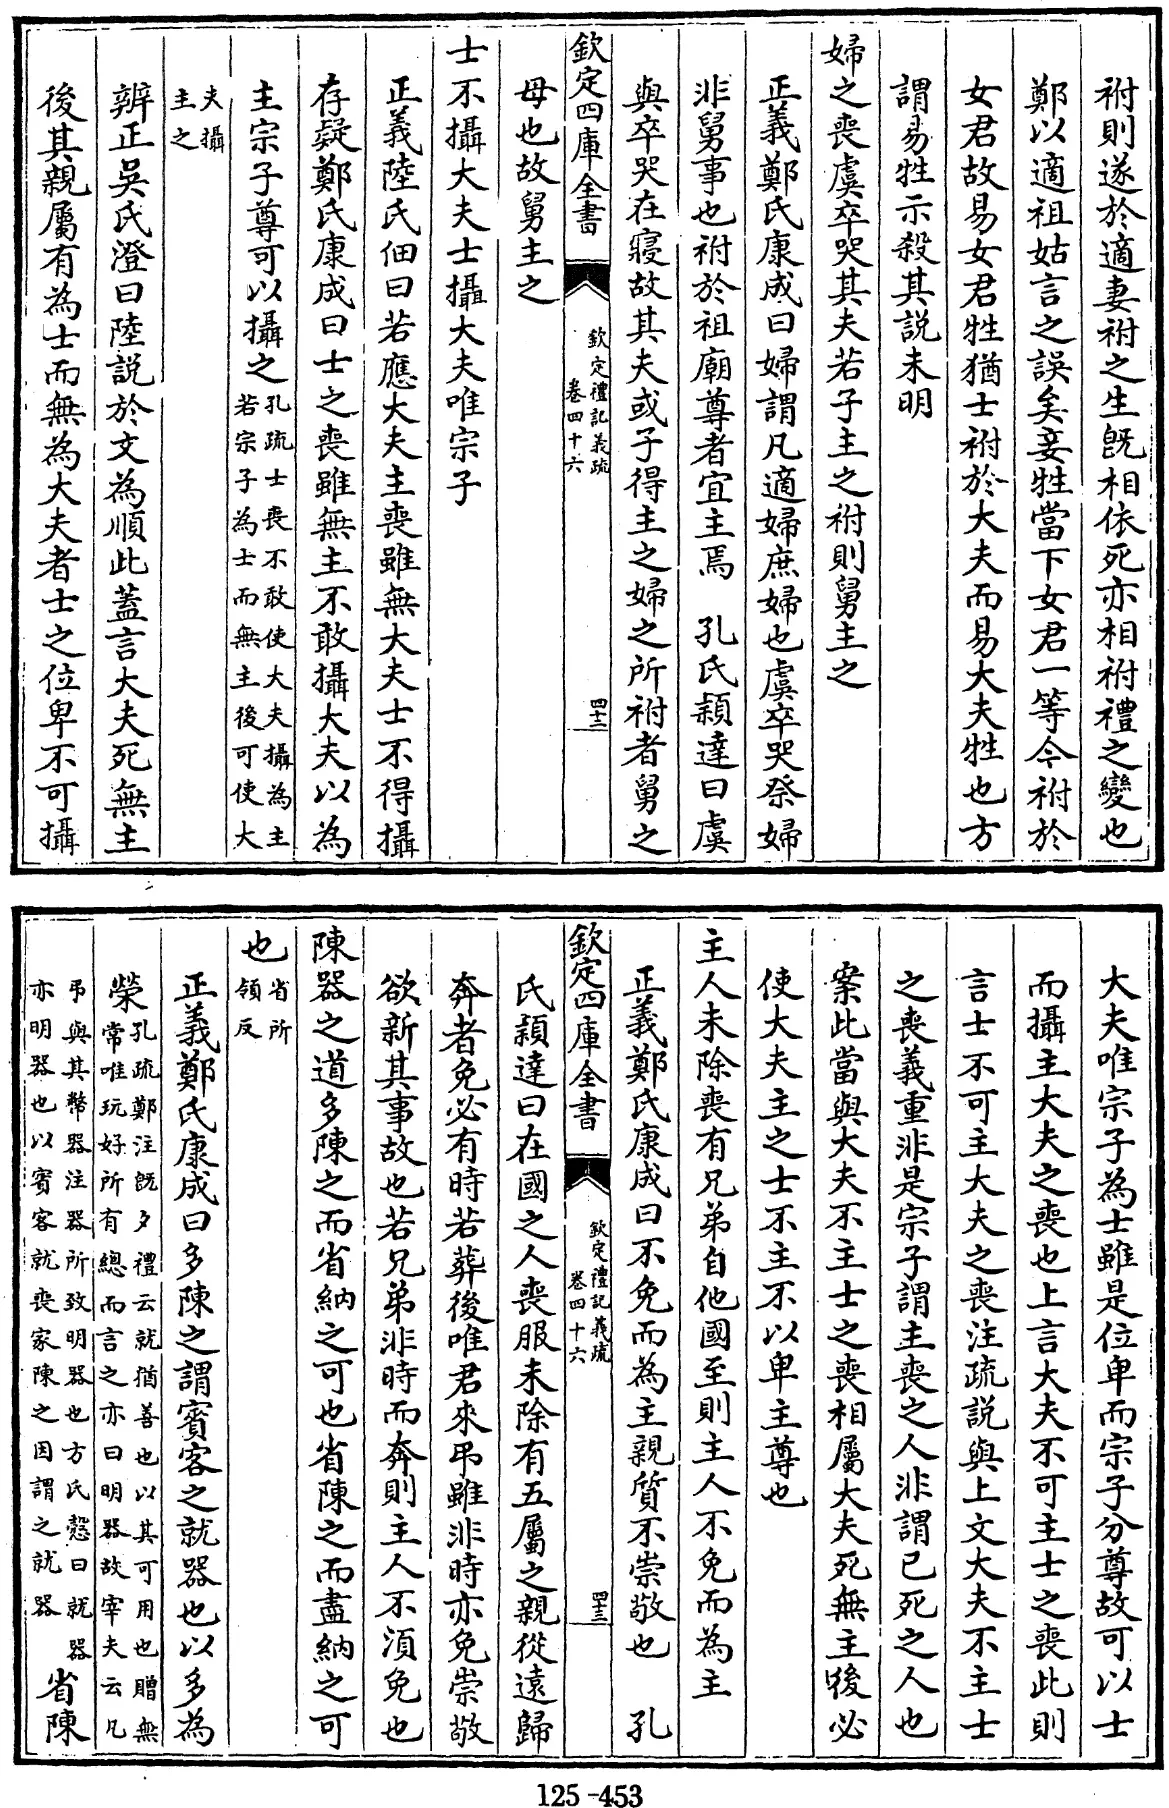 祔則遂於適妻祔之生旣相依死亦相祔禮之變也
鄭以適祖姑言之誤矣妾牲當下女君一等今祔於
女君故易女君牲猶士祔於大夫而易大夫牲也方
謂易牲示殺其說未明
婦之喪虞卒哭其夫若子主之祔則舅主之
正義鄭氏康成曰婦謂凡適婦庶婦也虞卒哭祭婦
非舅事也祔於祖廟尊者宜主焉　孔氏穎達曰虞
與卒哭在寢故其夫或子得主之婦之所祔者舅之
欽定四庫全書
欽定禮記義疏
卷四十六
四十二
母也故舅主之
士不攝大夫士攝大夫唯宗子
正義陸氏佃曰若應大夫主喪雖無大夫士不得攝
存疑鄭氏康成曰士之喪雖無主不敢攝大夫以為
主宗子尊可以攝之
孔疏士喪不敢使大夫攝為主
若宗子為士而無主後可使大
夫攝
主之
辨正吳氏澄曰陸說於文為順此蓋言大夫死無主
後其親屬有為士而無為大夫者士之位卑不可攝
大夫唯宗子為士雖是位卑而宗子分尊故可以士
而攝主大夫之喪也上言大夫不可主士之喪此則
言士不可主大夫之喪注疏說與上文大夫不主士
之喪義重非是宗子謂主喪之人非謂已死之人也
案此當與大夫不主士之喪相屬大夫死無主後必
使大夫主之士不主不以卑主尊也
主人未除喪有兄弟自他國至則主人不免而為主
正義鄭氏康成曰不免而為主親質不崇敬也　孔
欽定四庫全書
欽定禮記義疏
卷四十六
四十三
氏穎達曰在國之人喪服未除有五屬之親從遠歸
奔者免必有時若葬後唯君來弔雖非時亦免崇敬
欲新其事故也若兄弟非時而奔則主人不須免也
陳器之道多陳之而省納之可也省陳之而盡納之可
也
省所
領反
正義鄭氏康成曰多陳之謂賓客之就器也以多為
榮
孔疏鄭注旣夕禮云就猶善也以其可用也贈無
常唯玩好所有總而言之亦曰明器故宰夫云凡
弔與其幣器注器所致明器也方氏慤曰就器
亦明器也以賓客就喪家陳之因謂之就器
省陳
125-453